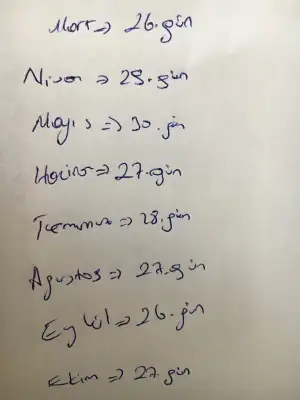 Mart => 26.gün
Nisan => 25.gün
Mayıs => 30.gün
Haziran => 27.gün
Temmuz => 28.gün
Ağustos => 27.gün
Eylül => 26.gün
Ekim => 27.gün